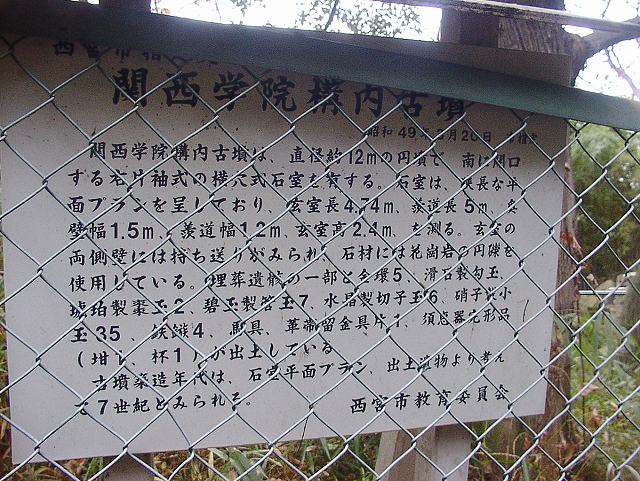 西宮市指定
関西学院構内古墳
昭和49年3月20日 市指定
関西学院構内古墳は、直径約12mの円墳で 南に開口
する右片袖式の横穴式石室を有する。石室は、狭長な平
面プランを呈しており、玄室長4.74m、羨道長5m、奥
壁幅1.5m、羨道幅1.2m、玄室高2.4m、を測る。玄室の
両側壁には持ち送りがみられ、石材には花崗岩の円礫を
使用している。埋葬遺骸の一部と金環5、滑石製勾玉、
琥珀製棗玉2、碧玉製管玉7、水晶製切子玉6、硝子製小
玉35、鉄鏃4、馬具、革帯留金具片1、須恵器完形品
(坩1、杯1)が出土している
古墳築造年代は、石室平面プラン、出土遺物より考え
て7世紀とみられる。
西宮市教育委員会